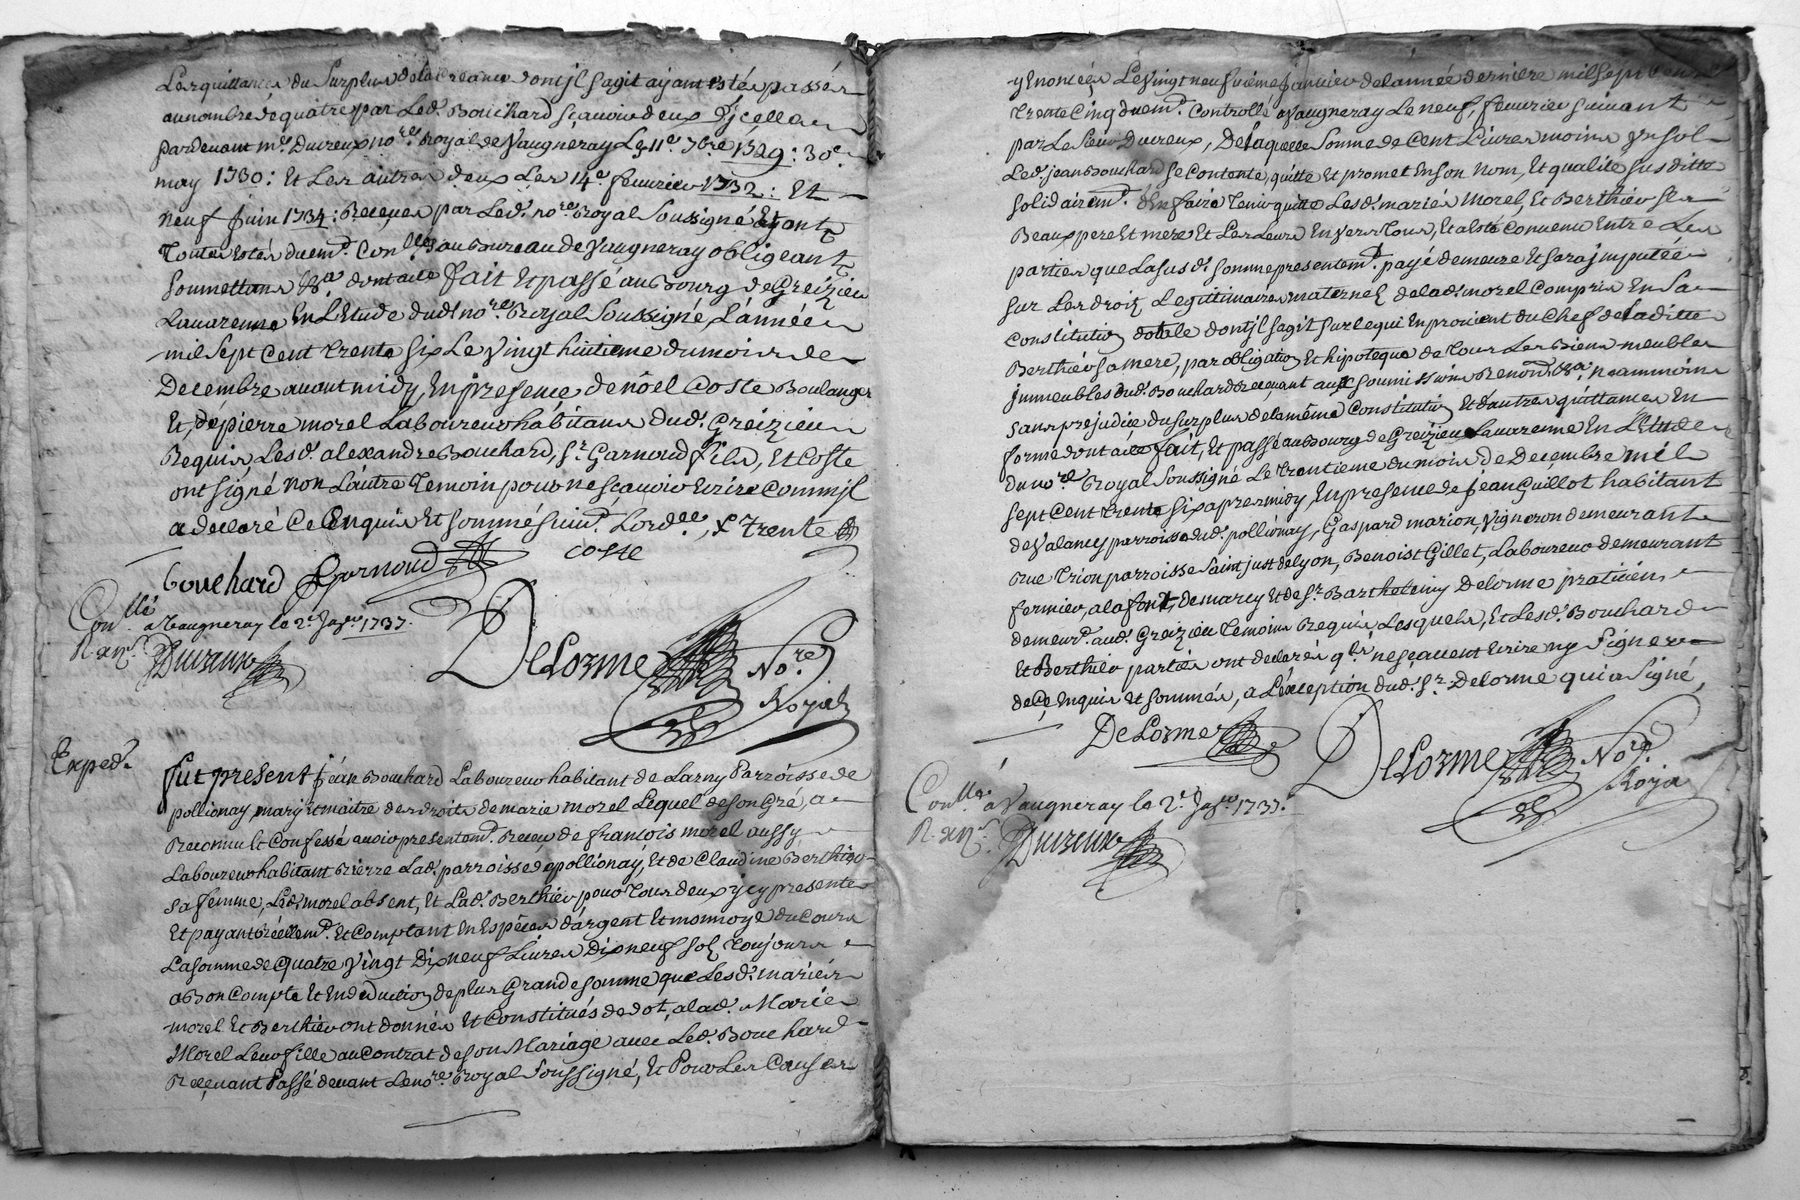 Les quittances du Surplus de la Creance dont jl sagit ayant estés passés
au nombre de quatre par Led. Bouchard sçauoir deux d'jcelles
pardeuant me. Ducreux nore. Royal de Vaugneray Le 11e. 7bre 1729: 30e
may 1730: Et Les autres deux Les 14e. feuurier 1732: Et
neuf Juin 1734: Receües par Led. nore. Royal Soussigné Et ont
Toutes estés duemt. Conllés au Bureau de Vaugneray obligeant
Soumettans &a. dont acte fait Et passé au Bourg de Greizieu
Lauarenne En L'Etude dud. nore. Royal Soussigné, L'année
mil Sept Cent trente Six Le Vingt huitieme du mois de
Decembre auant midy, En presence de nöel Coste Boulanger
Et, de pierre morel Laboureur habitans dud. Greizieu
Requis, Lesd. alexandre Bouchard, Sr. Garnoud fils, Et Coste
ont signé non L'autre Temoin pour ne sçauoir Ecrire Comm'jl
a declaré de ce Enquis Et sommé suiut. Lordce., x Trente
bouchard Garnoud coste
Conllé
a Vaugneray le 2e. Jaer. 1737.
R xijs. Ducreux
DeLorme Nore.
Royal
Exped.
fut present Jéan Bouchard Laboureur habitant de Larny Parroisse de
pollionay mary Et maitre des droits de marie morel Lequel de son Gré, a
Reconnu Et Confessé auoir presentemt. Receu de françois morel aussy
Laboureur habitant Rierre Lad. parroisse de pollionay, Et de Claudine Berthier
sa femme, Led. morel absent, Et Lad. Berthier pour Tous deux jcy presente
Et payant Réellemt. Et Comptant En Espéces d'argent Et monnoye du Cours
La somme de quatre Vingt Dix neuf Liures Dix neuf sols Toujours
a Bon Compte Et En deduction de plus Grande somme que Lesd. mariés
morel Et Berthier ont donnés Et Constitués de dot, a lad. Marie
Morel Leur fille au Contrat de son Mariage auec Led. Bouchard
Reçeuant Passé deuant Le nore. Royal Soussigné, Et Pour Les Causes
y Enoncées Le Vingt neufuieme Januier de L'année derniere mil Sept Cent
Trente Cinq duemt. Controllé a Vaugneray Le neuf, feuurier suiuant
par Le Sieur Ducreux, De Laquelle Somme de Cent Liures moins Vn sol
Led. jean Bouchard se Contente, quitte Et promet En son nom, Et qualité susditte
solidairemt. d'En faire Tenir quitte Lesd. mariés Morel, Et Berthier ses
Beaux pere Et mere Et Les Leurs Enuers Tous, Et a Esté Conuenu Entre Les
parties que La susd. somme presentemt. payé demeure Et sera jmputée
sur Les droits Legittimaires maternels de lad. morel Compris En Sa
Constitution dotale dont jl sagit sur Ce qui En prouient du Chef de Laditte
Berthier sa mere, par obligation Et hipoteque de Tous Les Biens meubles
jmmeubles dud. Bouchard Reçeuant aux soumissions Renonons. &a. neammoins
sans prejudice du surplus de la même Constitution Et d'autres quittances En
forme dont acte fait, Et passé au Bourg de Greizieu Lauarenne En L'Etude
du nore. Royal Soussigné Le Trentieme du mois de Decembre mil
sept Cent trente six apres midy, En presence de Jean Guillot habitant
de Valancy parroisse dud. pollionay, Gaspard marion, Vigneron demeurant
Rue Trion parroisse saint just de Lyon, Benoist Gillet, Laboureur demeurant
fermier, a la font, de marcy Et de Sr. Barthelemy Delorme praticien,
demeurt. aud. Greizieu Temoins Requis Lesquels, Et Lesd. Bouchard
Et Berthier parties ont declarés qls. ne sçauent Ecrire ny Signer
de Ce Enquis Et sommés, a L'éxception dud. Sr. Delorme qui a Signé,
DeLorme DeLorme Nore.
Royal
Conllé
a Vaugneray le 2e. Jaer. 1737.
R xijs. Ducreux